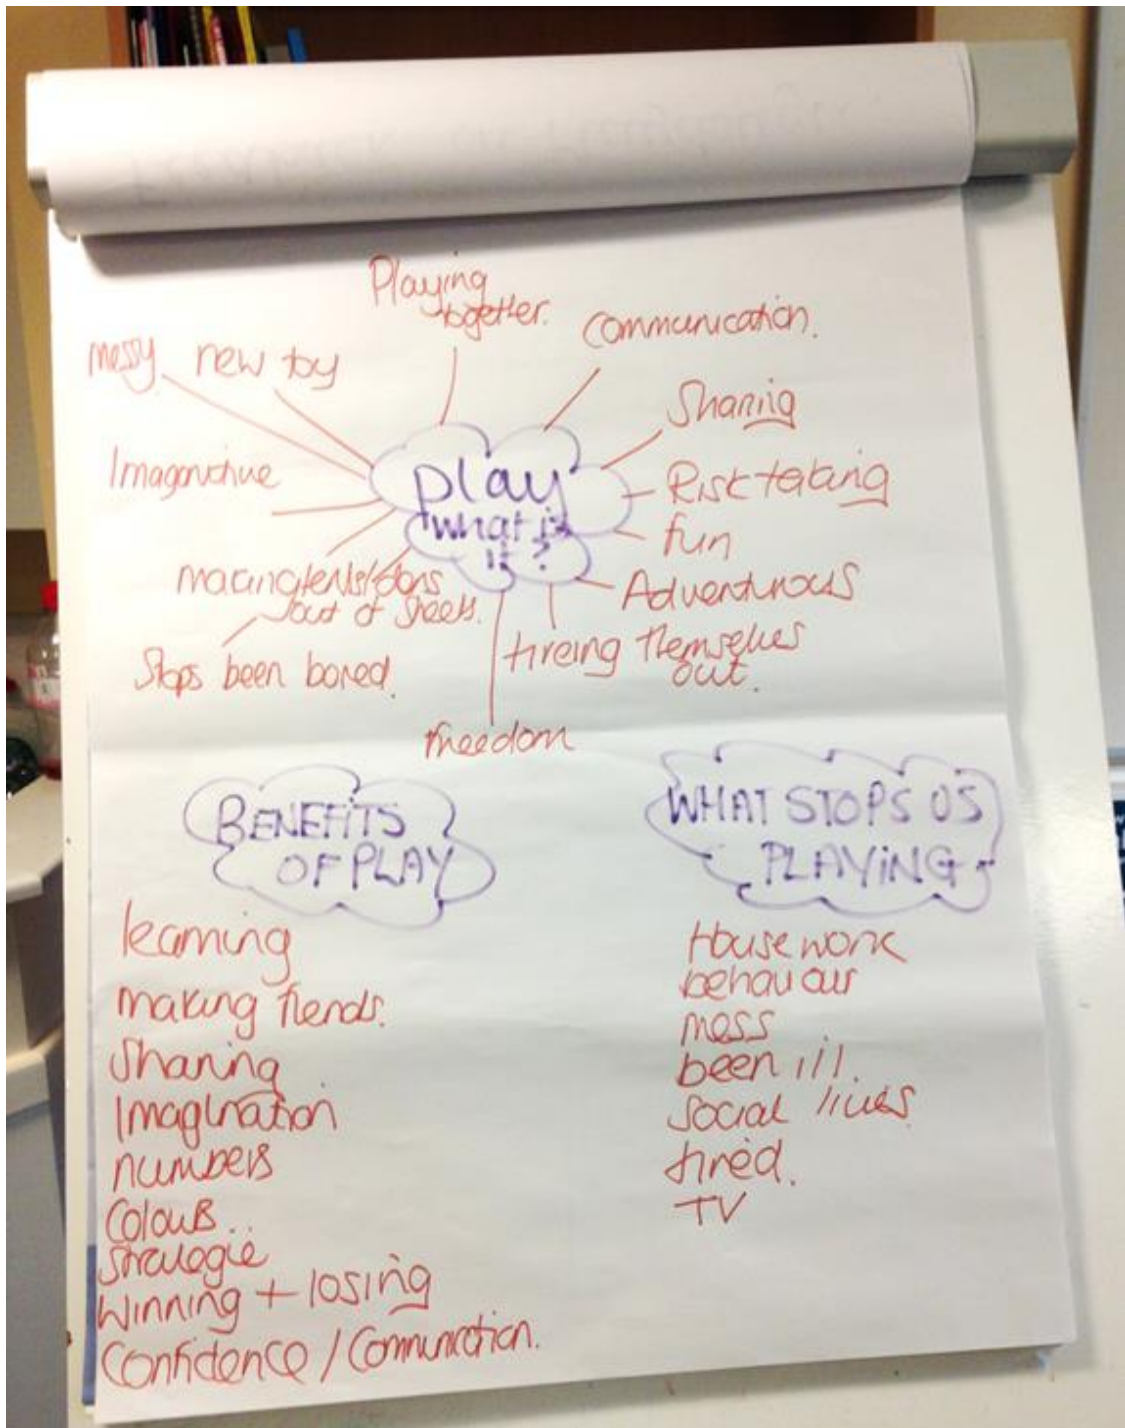 Playing
together.
communication.
messy.
new toy
Sharing
Imaginative
play
what is
it?
Risk taking
fun
making tents/dens
out of sheets.
Adventurous
Stops been bored.
tireing themselves
out.
freedom
BENEFITS
OF PLAY
WHAT STOPS US
PLAYING
learning
making fiends.
Sharing
Imagination
numbers
Colours..
Strategie
Winning + losing
Confidence / Communication.
House work
behaviour
mess
been ill.
social lives.
tired.
TV